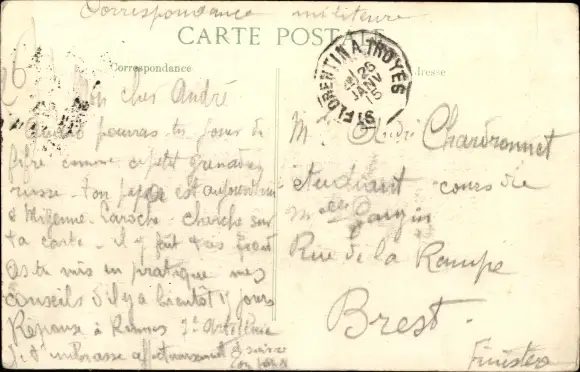 Correspondance militaire
CARTE POSTALE
Correspondance
Adresse
ST FLORENTIN A TROYES
26
JANV
15
Mon cher André
pourras tu jouer du
fifre comme ce petit grenadier
russe - ton papa est aujourd'hui
à Migenne-Laroche - cherche sur
ta carte - il y fait très froid
as tu mis en pratique mes
conseils d'il y a bientôt 17 jours
Réponse à Rennes 7e Artillerie
Je t'embrasse affectueusement
M. André Chardronnet
étudiant cours de
Melle
Rue de la Rampe
Brest.
Finistère